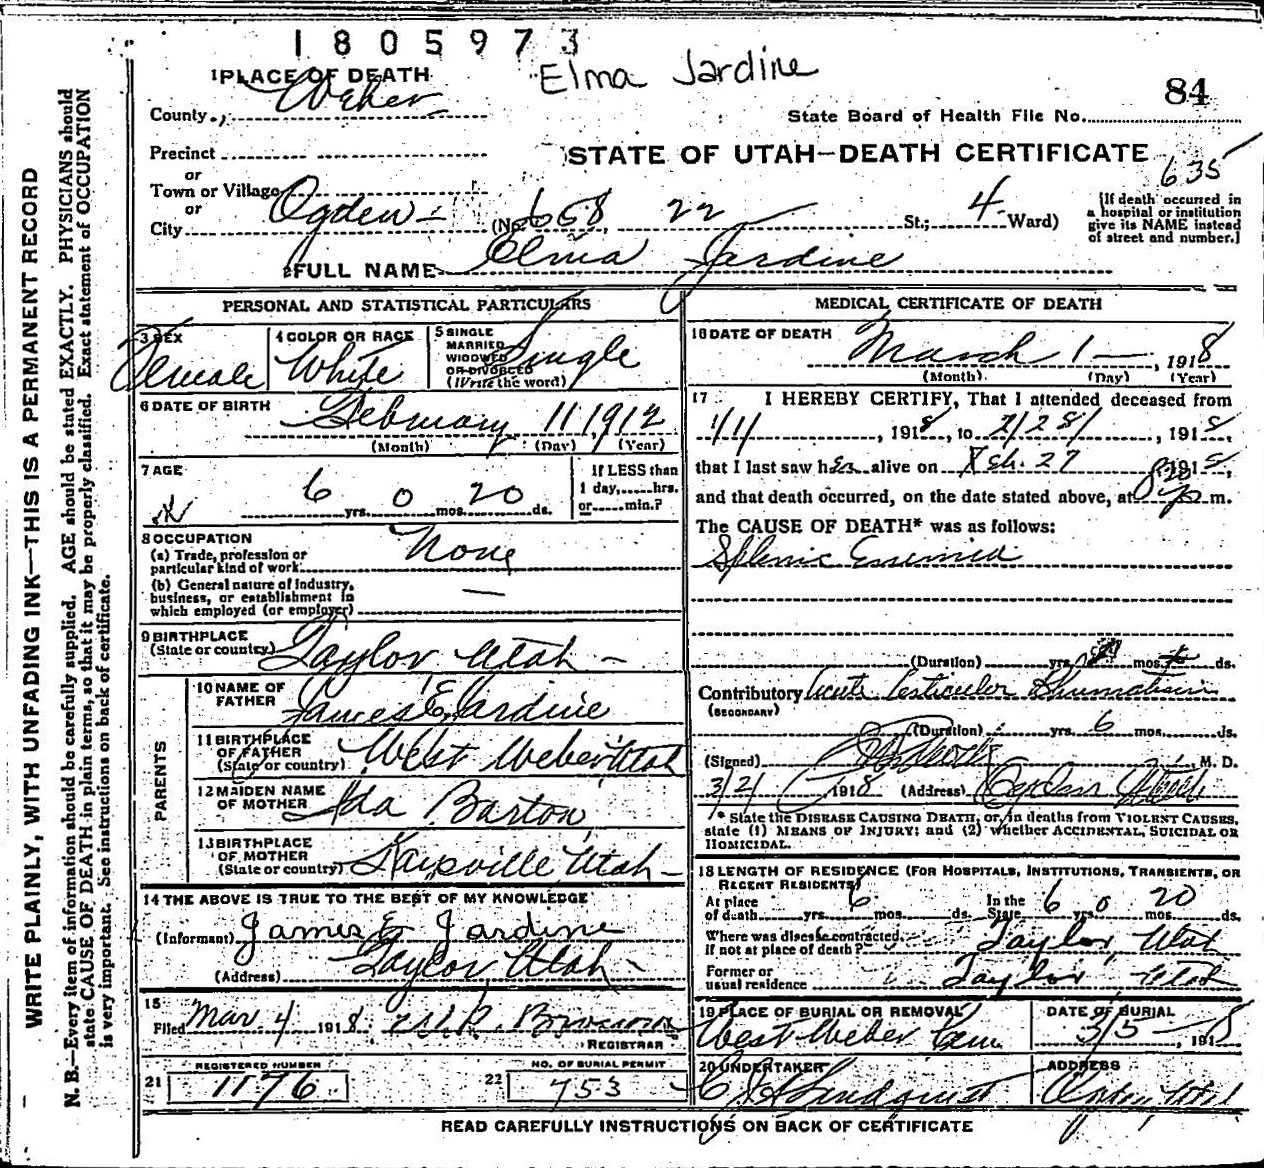 1805973
Elma Jardine
84
1 PLACE OF DEATH
County Weber
State Board of Health File No.
Precinct
or
STATE OF UTAH—DEATH CERTIFICATE
635
Town or Village
or
City Ogden (No. 658, 22 St.; 4 Ward)
[If death occurred in
a hospital or institution
give its NAME instead
of street and number.]
2 FULL NAME Elma Jardine
PERSONAL AND STATISTICAL PARTICULARS
3 SEX
Female
4 COLOR OR RACE
White
5 SINGLE
MARRIED
WIDOWED
OR DIVORCED
(Write the word)
Single
6 DATE OF BIRTH
February 11, 1912
(Month) (Day) (Year)
7 AGE
6 yrs. 0 mos. 20 ds.
If LESS than
1 day,......hrs.
or......min.?
8 OCCUPATION
(a) Trade, profession or
particular kind of work None
(b) General nature of industry,
business, or establishment in
which employed (or employer) —
9 BIRTHPLACE
(State or country) Taylor Utah —
PARENTS
10 NAME OF
FATHER James E Jardine
11 BIRTHPLACE
OF FATHER
(State or country) West Weber Utah
12 MAIDEN NAME
OF MOTHER Ida Barton
13 BIRTHPLACE
OF MOTHER
(State or country) Kaysville Utah —
14 THE ABOVE IS TRUE TO THE BEST OF MY KNOWLEDGE
(Informant) James E Jardine
(Address) Taylor Utah —
15
Filed Mar 4 1918
REGISTRAR
21 REGISTERED NUMBER
1176
22 NO. OF BURIAL PERMIT
753
MEDICAL CERTIFICATE OF DEATH
16 DATE OF DEATH
March 1 —, 1918
(Month) (Day) (Year)
17 I HEREBY CERTIFY, That I attended deceased from
1918, to 2/28/, 1918,
that I last saw her alive on Feb. 27 1918,
and that death occurred, on the date stated above, at m.
The CAUSE OF DEATH* was as follows:
Splenic Enemia
(Duration) yrs. mos. ds.
Contributory Acute Rheumatism
(SECONDARY)
(Duration) yrs. 6 mos. ds.
(Signed) M. D.
1918 (Address) Ogden Utah
* State the DISEASE CAUSING DEATH, or, in deaths from VIOLENT CAUSES,
state (1) MEANS OF INJURY; and (2) whether ACCIDENTAL, SUICIDAL OR
HOMICIDAL.
18 LENGTH OF RESIDENCE (FOR HOSPITALS, INSTITUTIONS, TRANSIENTS, OR
RECENT RESIDENTS)
At place
of death yrs. 6 mos. ds.
In the
State 6 yrs. 0 mos. 20 ds.
Where was disease contracted,
if not at place of death? Taylor Utah
Former or
usual residence Taylor Utah
19 PLACE OF BURIAL OR REMOVAL
West Weber Cem.
DATE OF BURIAL
3/5 —, 1918
20 UNDERTAKER
Lindquist
ADDRESS
Ogden Utah
READ CAREFULLY INSTRUCTIONS ON BACK OF CERTIFICATE
WRITE PLAINLY, WITH UNFADING INK—THIS IS A PERMANENT RECORD
N. B.—Every item of information should be carefully supplied. AGE should be stated EXACTLY. PHYSICIANS should
state CAUSE OF DEATH in plain terms, so that it may be properly classified. Exact statement of OCCUPATION
is very important. See instructions on back of certificate.